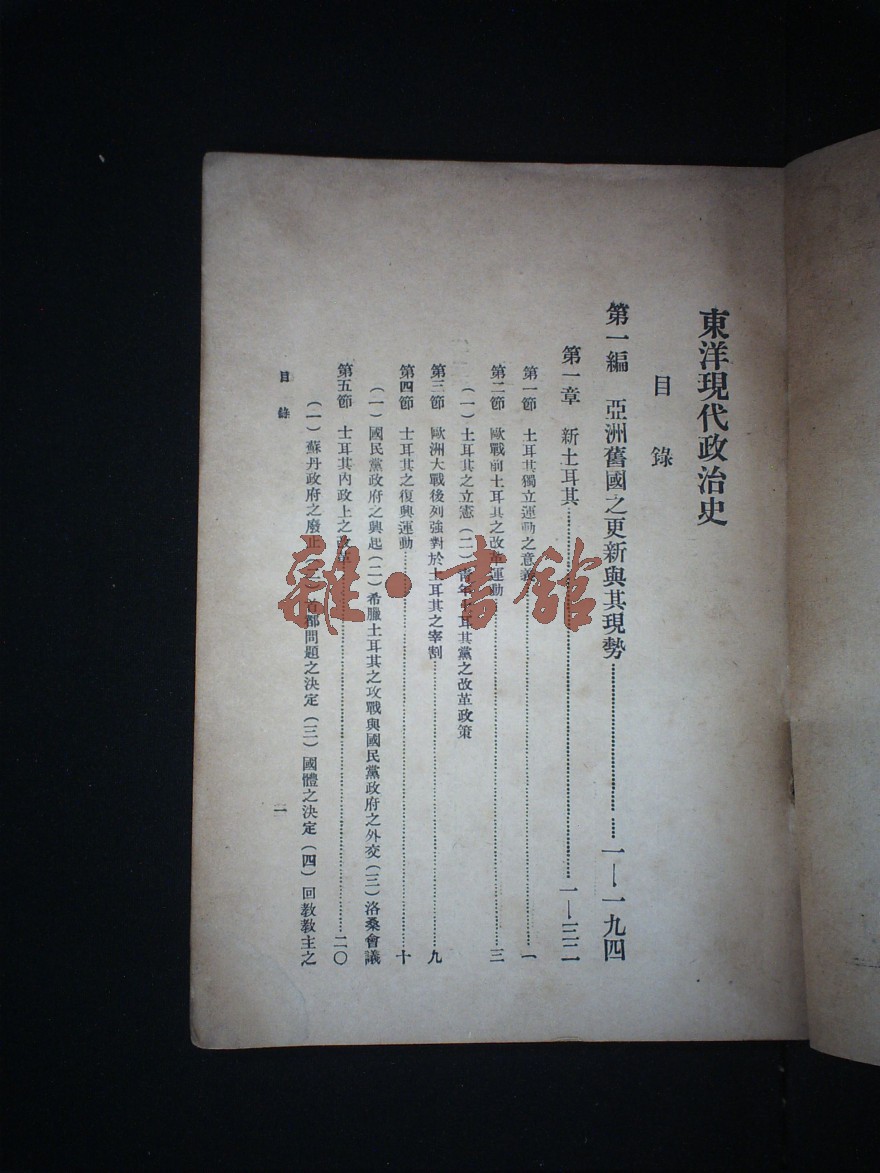 東洋現代政治史
目錄
第一編 亞洲舊國之更新與其現勢…………一—一九四
第一章 新土耳其…………一—三二
第一節 土耳其獨立運動之意義…………一
第二節 歐戰前土耳其之改革運動…………三
(一)土耳其之立憲(二)青年土耳其黨之改革政策
第三節 歐洲大戰後列強對於土耳其之宰割…………九
第四節 土耳其之復興運動…………十
(一)國民黨政府之興起(二)希臘土耳其之攻戰與國民黨政府之外交(三)洛桑會議
第五節 土耳其內政上之改革…………二〇
(一)蘇丹政府之廢止(二)首都問題之決定(三)國體之決定(四)回教教主之
目錄
一
雜·書館